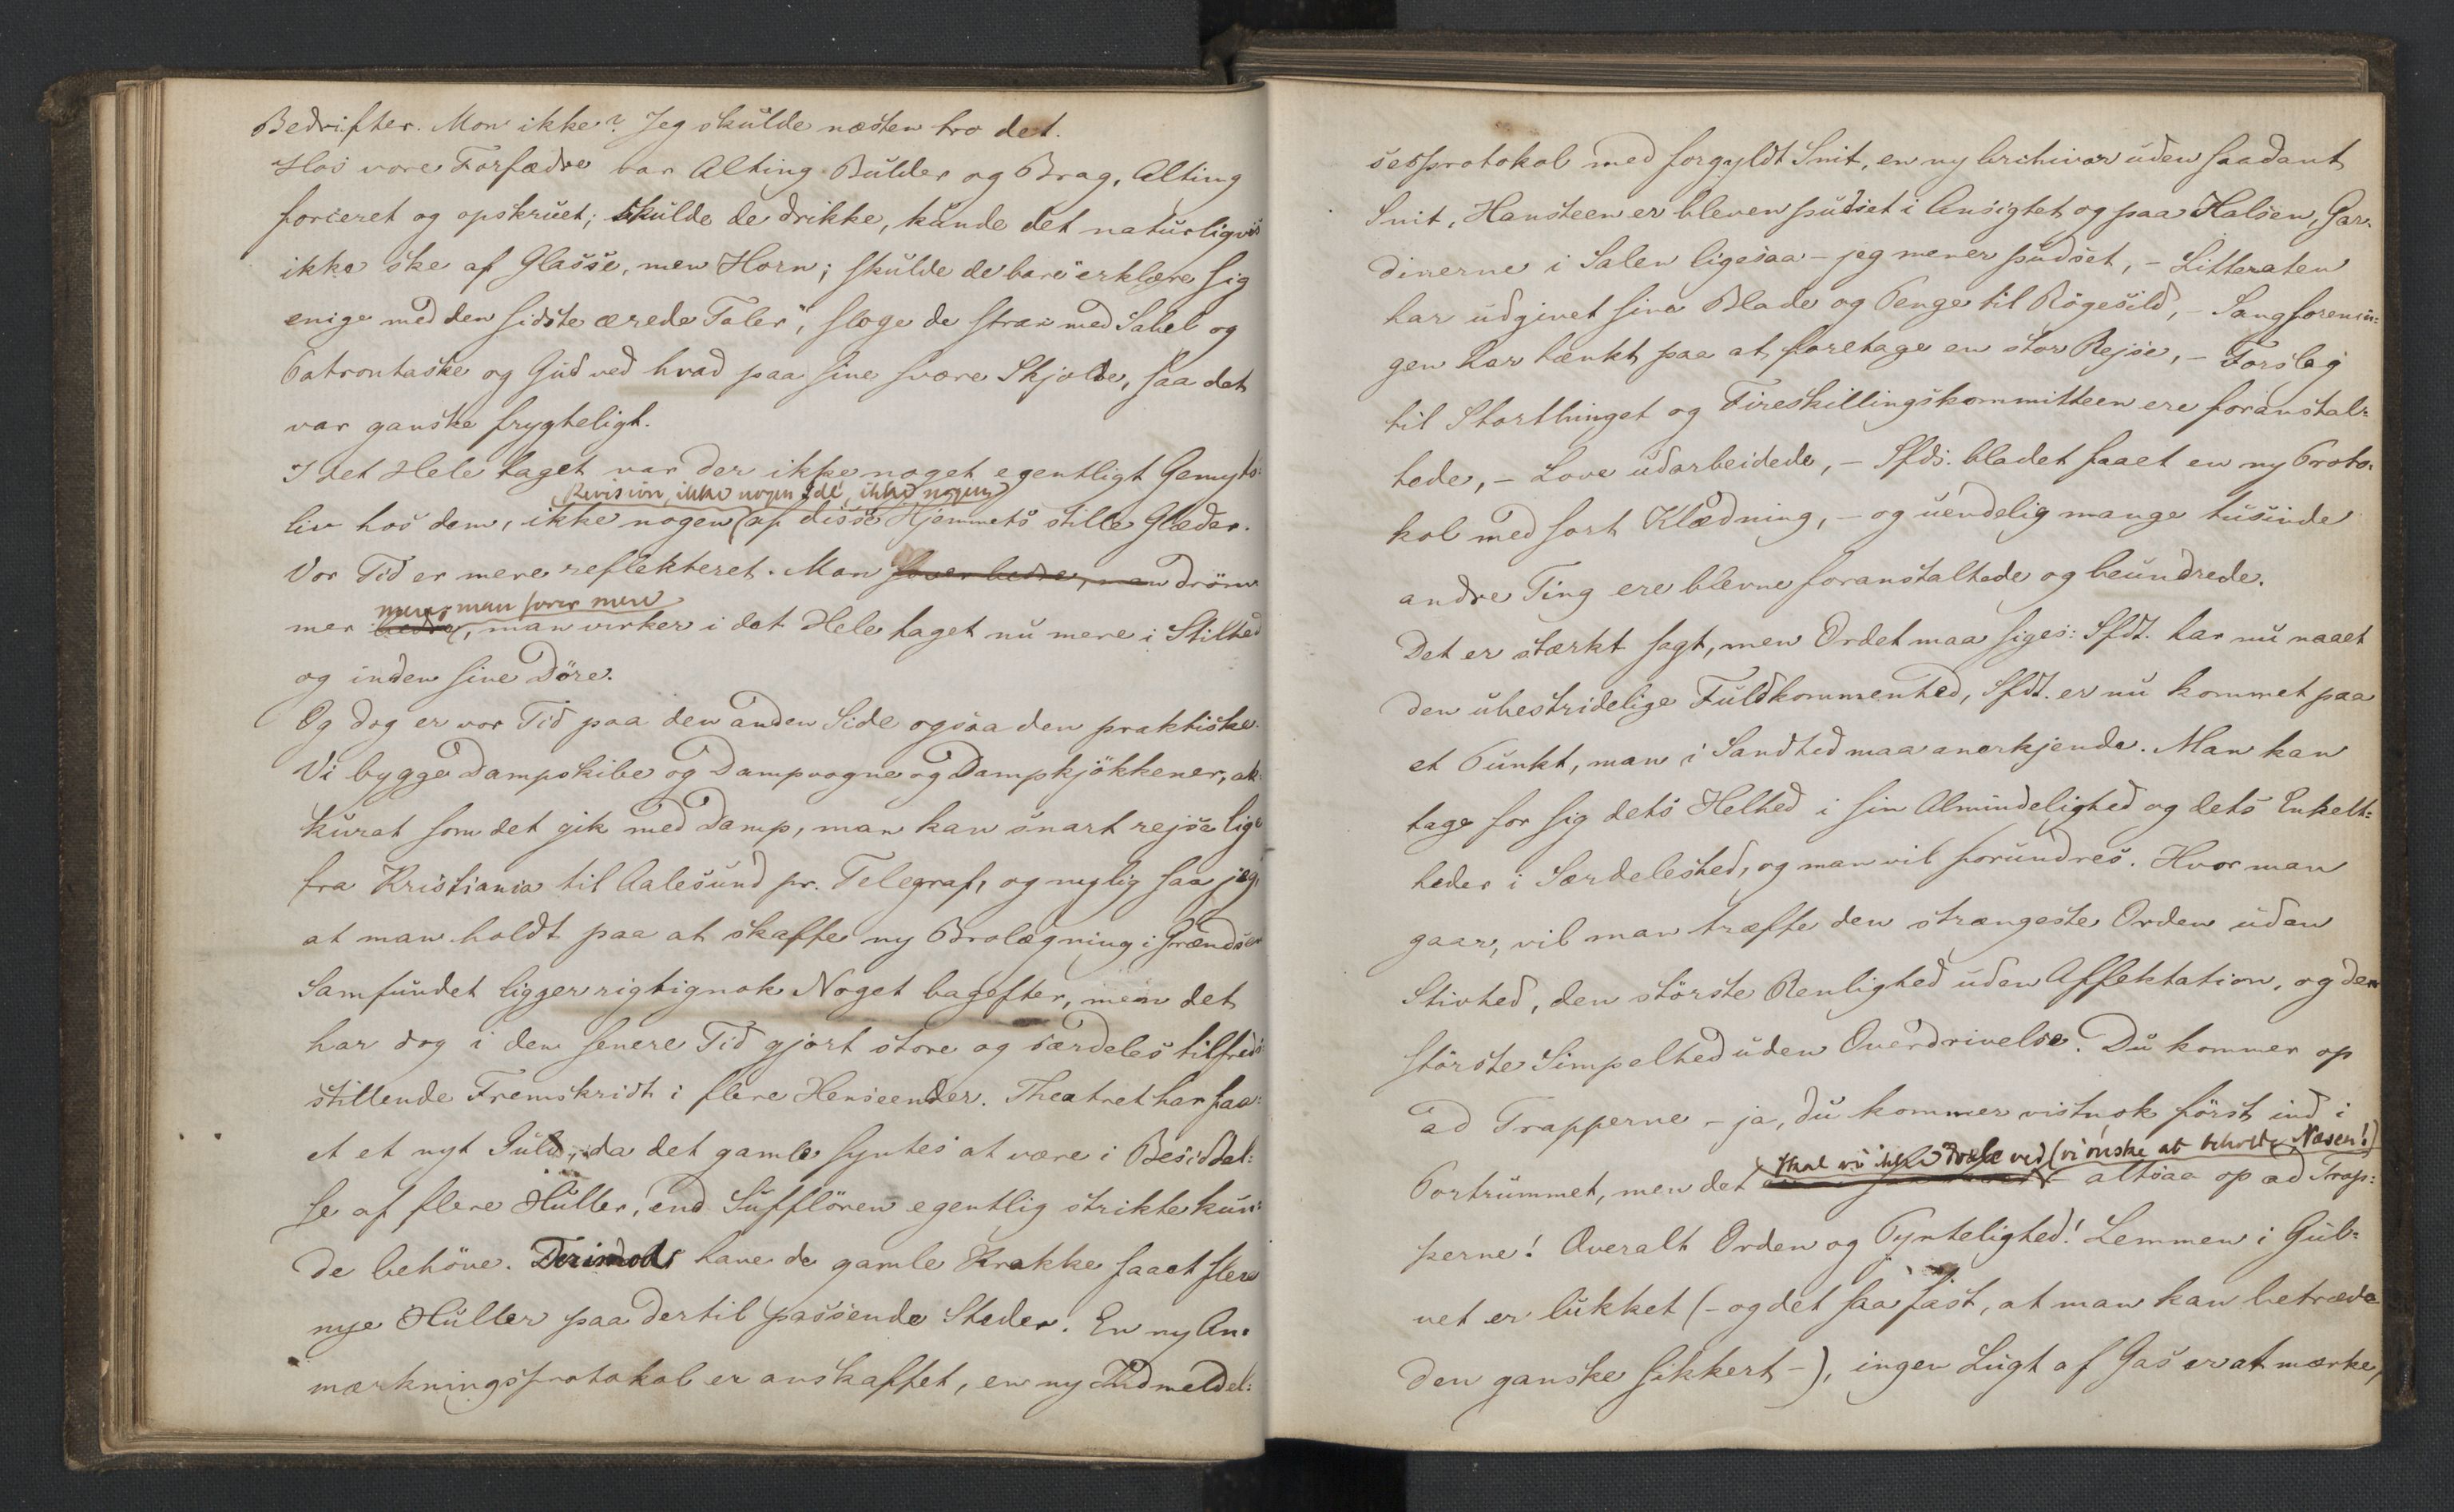 Bedrifter. Mon ikke? Jeg skulde næsten tro det.
Hos vore Forfædre var Alting Bulder og Brag, Alting
forceret og opskruet; skulde de drikke, kunde det naturligvis
ikke ske af Glasse, men Horn; skulde de bare "erklære sig
enige med den sidste ærede Taler", sloge de strax med Sabel og
Patrontaske og Gud ved hvad paa sine svære Skjolde, saa det
var ganske frygteligt.
I det Hele taget var der ikke noget egentligt Gemyts-
Revision, ikke nogen Idé, ikke nogen
liv hos dem, ikke nogen af disse Hjemmets stille Glæder.
Vor Tid er mere reflekteret. Man sover bedre, man drøm-
mere, man sover mere
mer bedre, man virker i det Hele taget nu mere i Stilhed
og inden sine Døre.
Og dog er vor Tid paa den anden Side ogsaa den praktiske.
Vi bygge Dampskibe og Dampvogne og Dampkjøkkener, ak-
kurat som det gik med Damp, man kan snart rejse lige
fra Kristiania til Aalesund pr. Telegraf, og nylig saa jeg,
at man holdt paa at skaffe ny Brolægning i Grændsen
Samfundet ligger rigtignok Noget bagefter, men det
har dog i den senere Tid gjort store og særdeles tilfreds-
stillende Fremskridt i flere Henseender. Theatret har faa-
et et nyt Gulv, da det gamle syntes at være i Besiddel-
se af flere Huller, end Sufflören egentlig strikte kun-
de behöve. Derimod have de gamle Frakke faaet flere
nye Huller paa dertil passende Steder. En ny An-
mærkningsprotokol er anskaffet, en ny Indmeldel-
sesprotokol med forgyldt Snit, en ny Archivar uden saadant
Snit, Hansteen er bleven pudset i Ansigtet og paa Halsen, Gar-
dinerne i Salen ligesaa - jeg mener pudset, - Litteraten
har udgivet sine Blade og Penge til Rögesild, - Sangforenin-
gen har tænkt paa at foretage en stor Rejse, - Forslag
til Storthinget og Fireskillingskommitteen ere foranstal-
tede, - Love udarbeidede, - Sfds. bladet faaet en ny Proto-
kol med sort Klædning, - og uendelig mange tusinde
andre Ting ere blevne foranstaltede og beundrede.
Det er stærkt sagt, men Ordet maa siges: Sfdt. har nu naaet
den ubestridelige Fuldkommenhed, Sfdt. er nu kommet paa
et Punkt, man i Sandhed maa anerkjende. Man kan
tage for sig dets Helhed i sin Almindelighed og dets Enkelt-
heder i Særdeleshed, og man vil forundres. Hvor man
gaar, vil man træffe den strængeste Orden uden
Stivhed, den störste Renlighed uden Affektation, og den
störste Simpelhed uden Overdrivelse. Du kommer op
ad Trapperne - ja, du kommer vistnok först ind i
skal vi ikke dvæle ved (vi önske at beholde Næsen!)
Portrummet, men det - altsaa op ad Trap-
perne! Overalt Orden og Pyntelighed! Lemmen i Gul-
vet er lukket (- og det saa fast, at man kan betræde
den ganske sikkert -), ingen Lugt af Gas er at mærke,